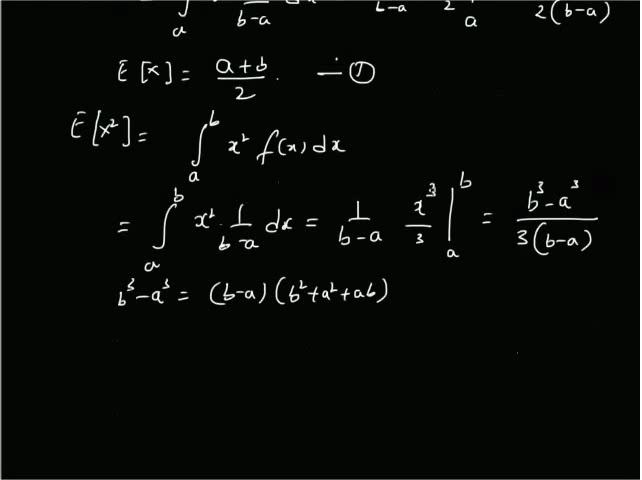 ∫ₐ 1/(b-a) dx b-a 2 a 2(b-a)
E[x] = (a+b)/2 . — ①
E[x²] = ∫ₐᵇ x² f(x) dx
= ∫ₐᵇ x² · 1/(b-a) dx = 1/(b-a) x³/3 |ₐᵇ = (b³-a³)/(3(b-a))
b³-a³ = (b-a)(b²+a²+ab)